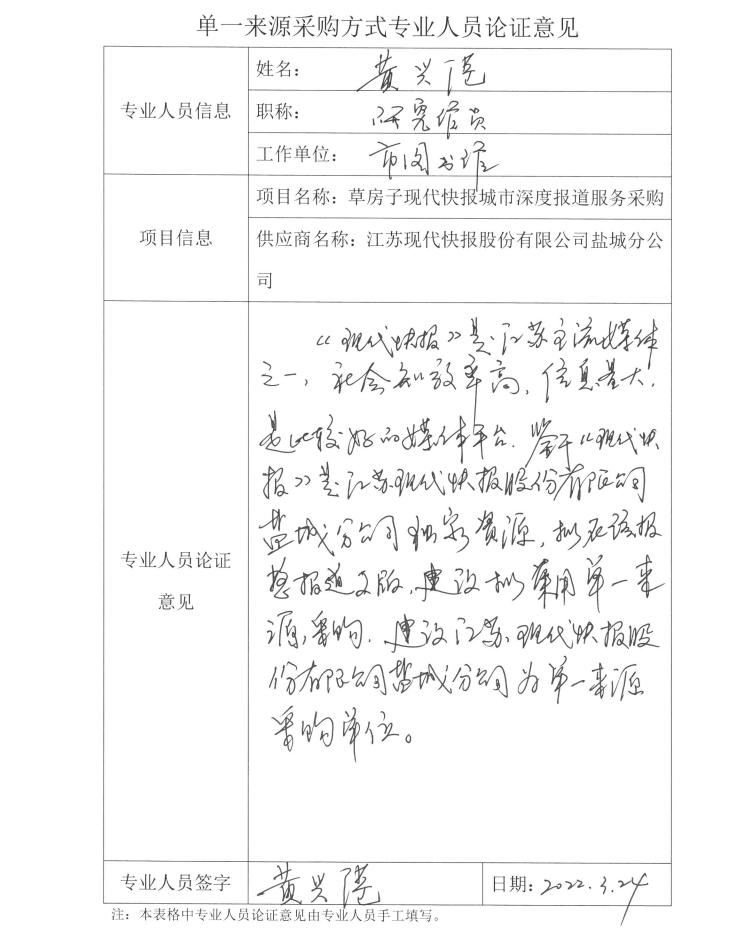 单一来源采购方式专业人员论证意见
专业人员信息
姓名：黄兴港
职称：研究馆员
工作单位：市图书馆
项目信息
项目名称：草房子现代快报城市深度报道服务采购
供应商名称：江苏现代快报股份有限公司盐城分公
司
专业人员论证
意见
《现代快报》是江苏主流媒体
之一，社会知效率高，信息量大，
是比较好的媒体平台。鉴于《现代快
报》是江苏现代快报股份有限公司
盐城分公司独家资源，拟在该报
报道文版，建议拟采用单一来
源采购，建议江苏现代快报股
份有限公司盐城分公司为单一来源
采购单位。
专业人员签字
黄兴港
日期：2022.3.24
注：本表格中专业人员论证意见由专业人员手工填写。